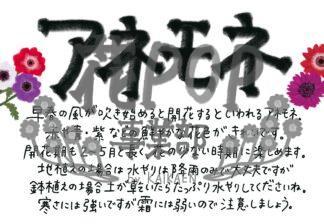 アネモネ
早春の風が吹き始めると開花するといわれるアネモネ。
開花期も2〜5月と長く花の少ない時期に楽しめます。
地植えの場合は水やりは降雨のみで大丈夫ですが
鉢植えの場合土が乾いたらたっぷり水やりしてくださいね。
寒さには強いですが霜には弱いので注意しましょう。